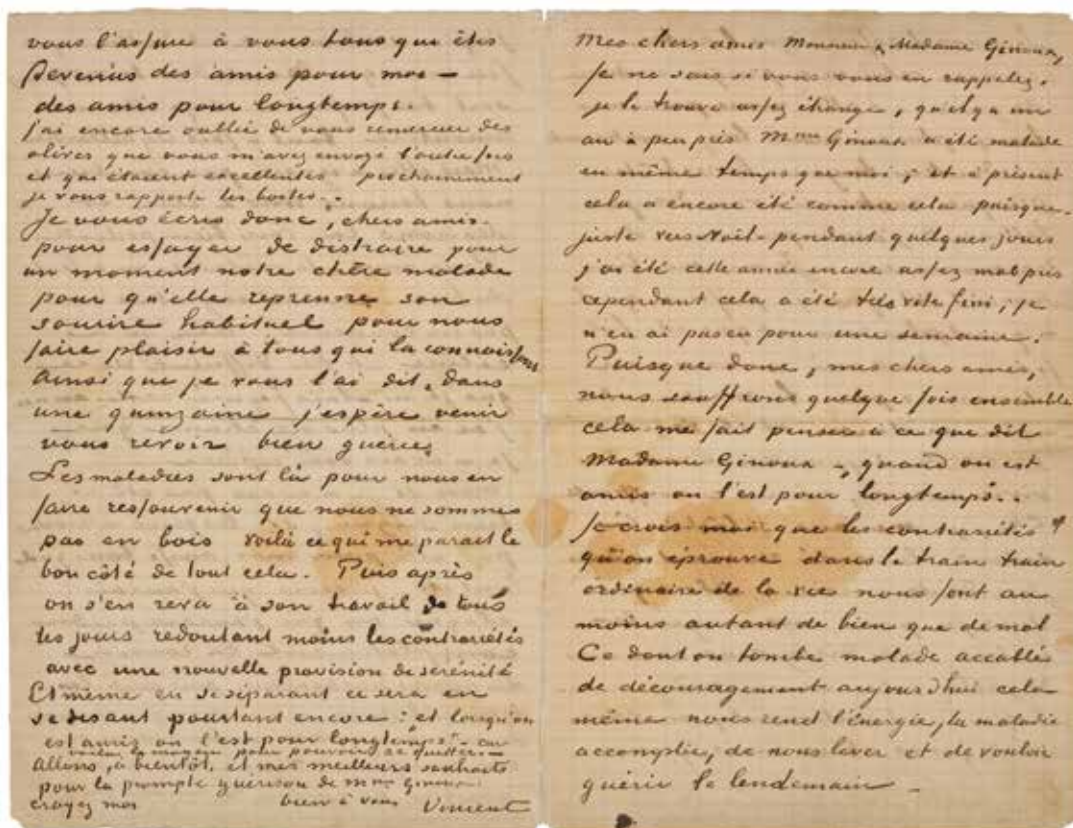 vous l'assure à vous tous que êtes
devenus des amis pour moi –
des amis pour longtemps.
j'ai encore oublié de vous remercier des
olives que vous m'avez envoyé l'autre fois
et qui étaient excellentes prochainement
je vous rapporte les boites..
Je vous écris donc, chers amis.
pour essayer de distraire pour
un moment notre chère malade
pour qu'elle reprenne son
sourire habituel pour nous
faire plaisir à tous qui la connaissons
Ainsi que je vous l'ai dit, dans
une quinzaine j'espère venir
vous revoir bien guéries
Les maladies sont là pour nous en
faire ressouvenir que nous ne sommes
pas en bois voilà ce qui me parait le
bon côté de tout cela. Puis après
on s'en reva à son travail de tous
les jours redoutant moins les contrariétés
avec une nouvelle provision de sérénité
Et même en se séparant ce sera en
se disant pourtant encore : et lorsqu'on
est amis on l'est pour longtemps" – car
voilà le moyen pour pouvoir se quitter. –
Allons, à bientôt, et mes meilleurs souhaits
pour la prompte guérison de Mme Ginoux
croyez moi bien à vous Vincent
Mes chers amis Monsieur & Madame Ginoux,
Je ne sais si vous vous en rappelez.
je le trouve assez étrange, qu'il y a un
an à peu près Mme Ginoux a été malade
en même temps que moi ; et à présent
cela a encore été comme cela puisque.
juste vers Noël – pendant quelques jours
j'ai été cette année encore assez mal pris
cependant cela a été très vite fini ; je
n'en ai pas eu pour une semaine.
Puisque donc, mes chers amis,
nous souffrons quelque fois ensemble
cela me fait penser à ce que dit
Madame Ginoux –, quand on est
amis on l'est pour longtemps"..
Je crois moi que les contrariétés
qu'on éprouve dans le train train
ordinaire de la vie nous font au
moins autant de bien que de mal
Ce dont on tombe malade accablé
de découragement aujourd'hui cela
même nous rend l'énergie, la maladie
accomplie, de nous lever et de vouloir
guérir le lendemain –